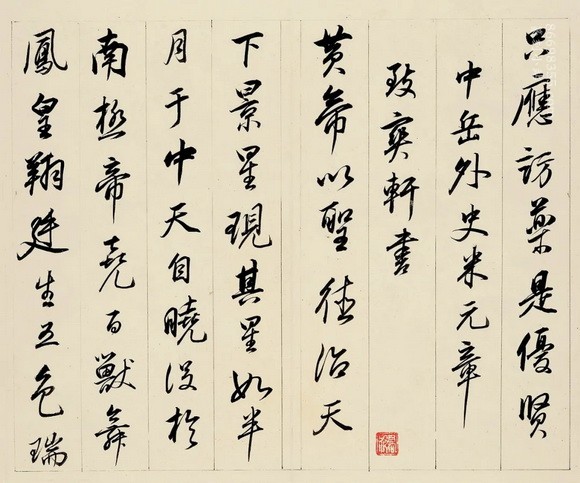 只應訪藥是優賢
中岳外史米元章
致爽軒書
黃帝以聖德治天
下景星現其星如半
月于中天自曉没於
南極帝堯百獸舞
鳳皇翔廷生五色瑞